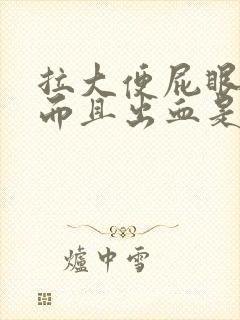 拉大便屁眼
而且出血是
爐中雪